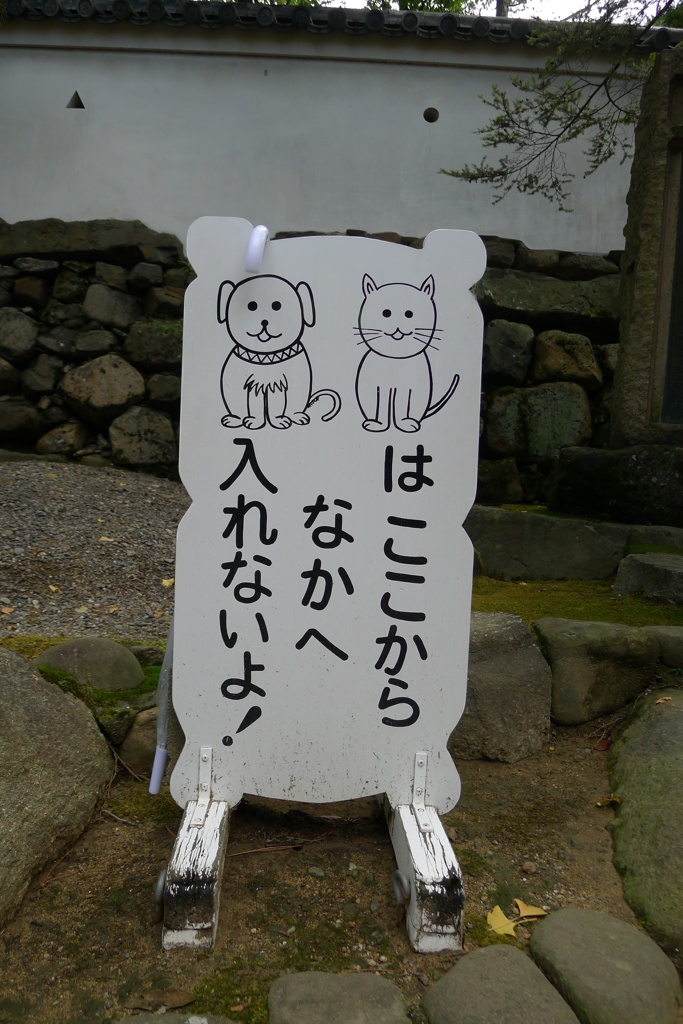 はここから
なかへ
入れないよ!